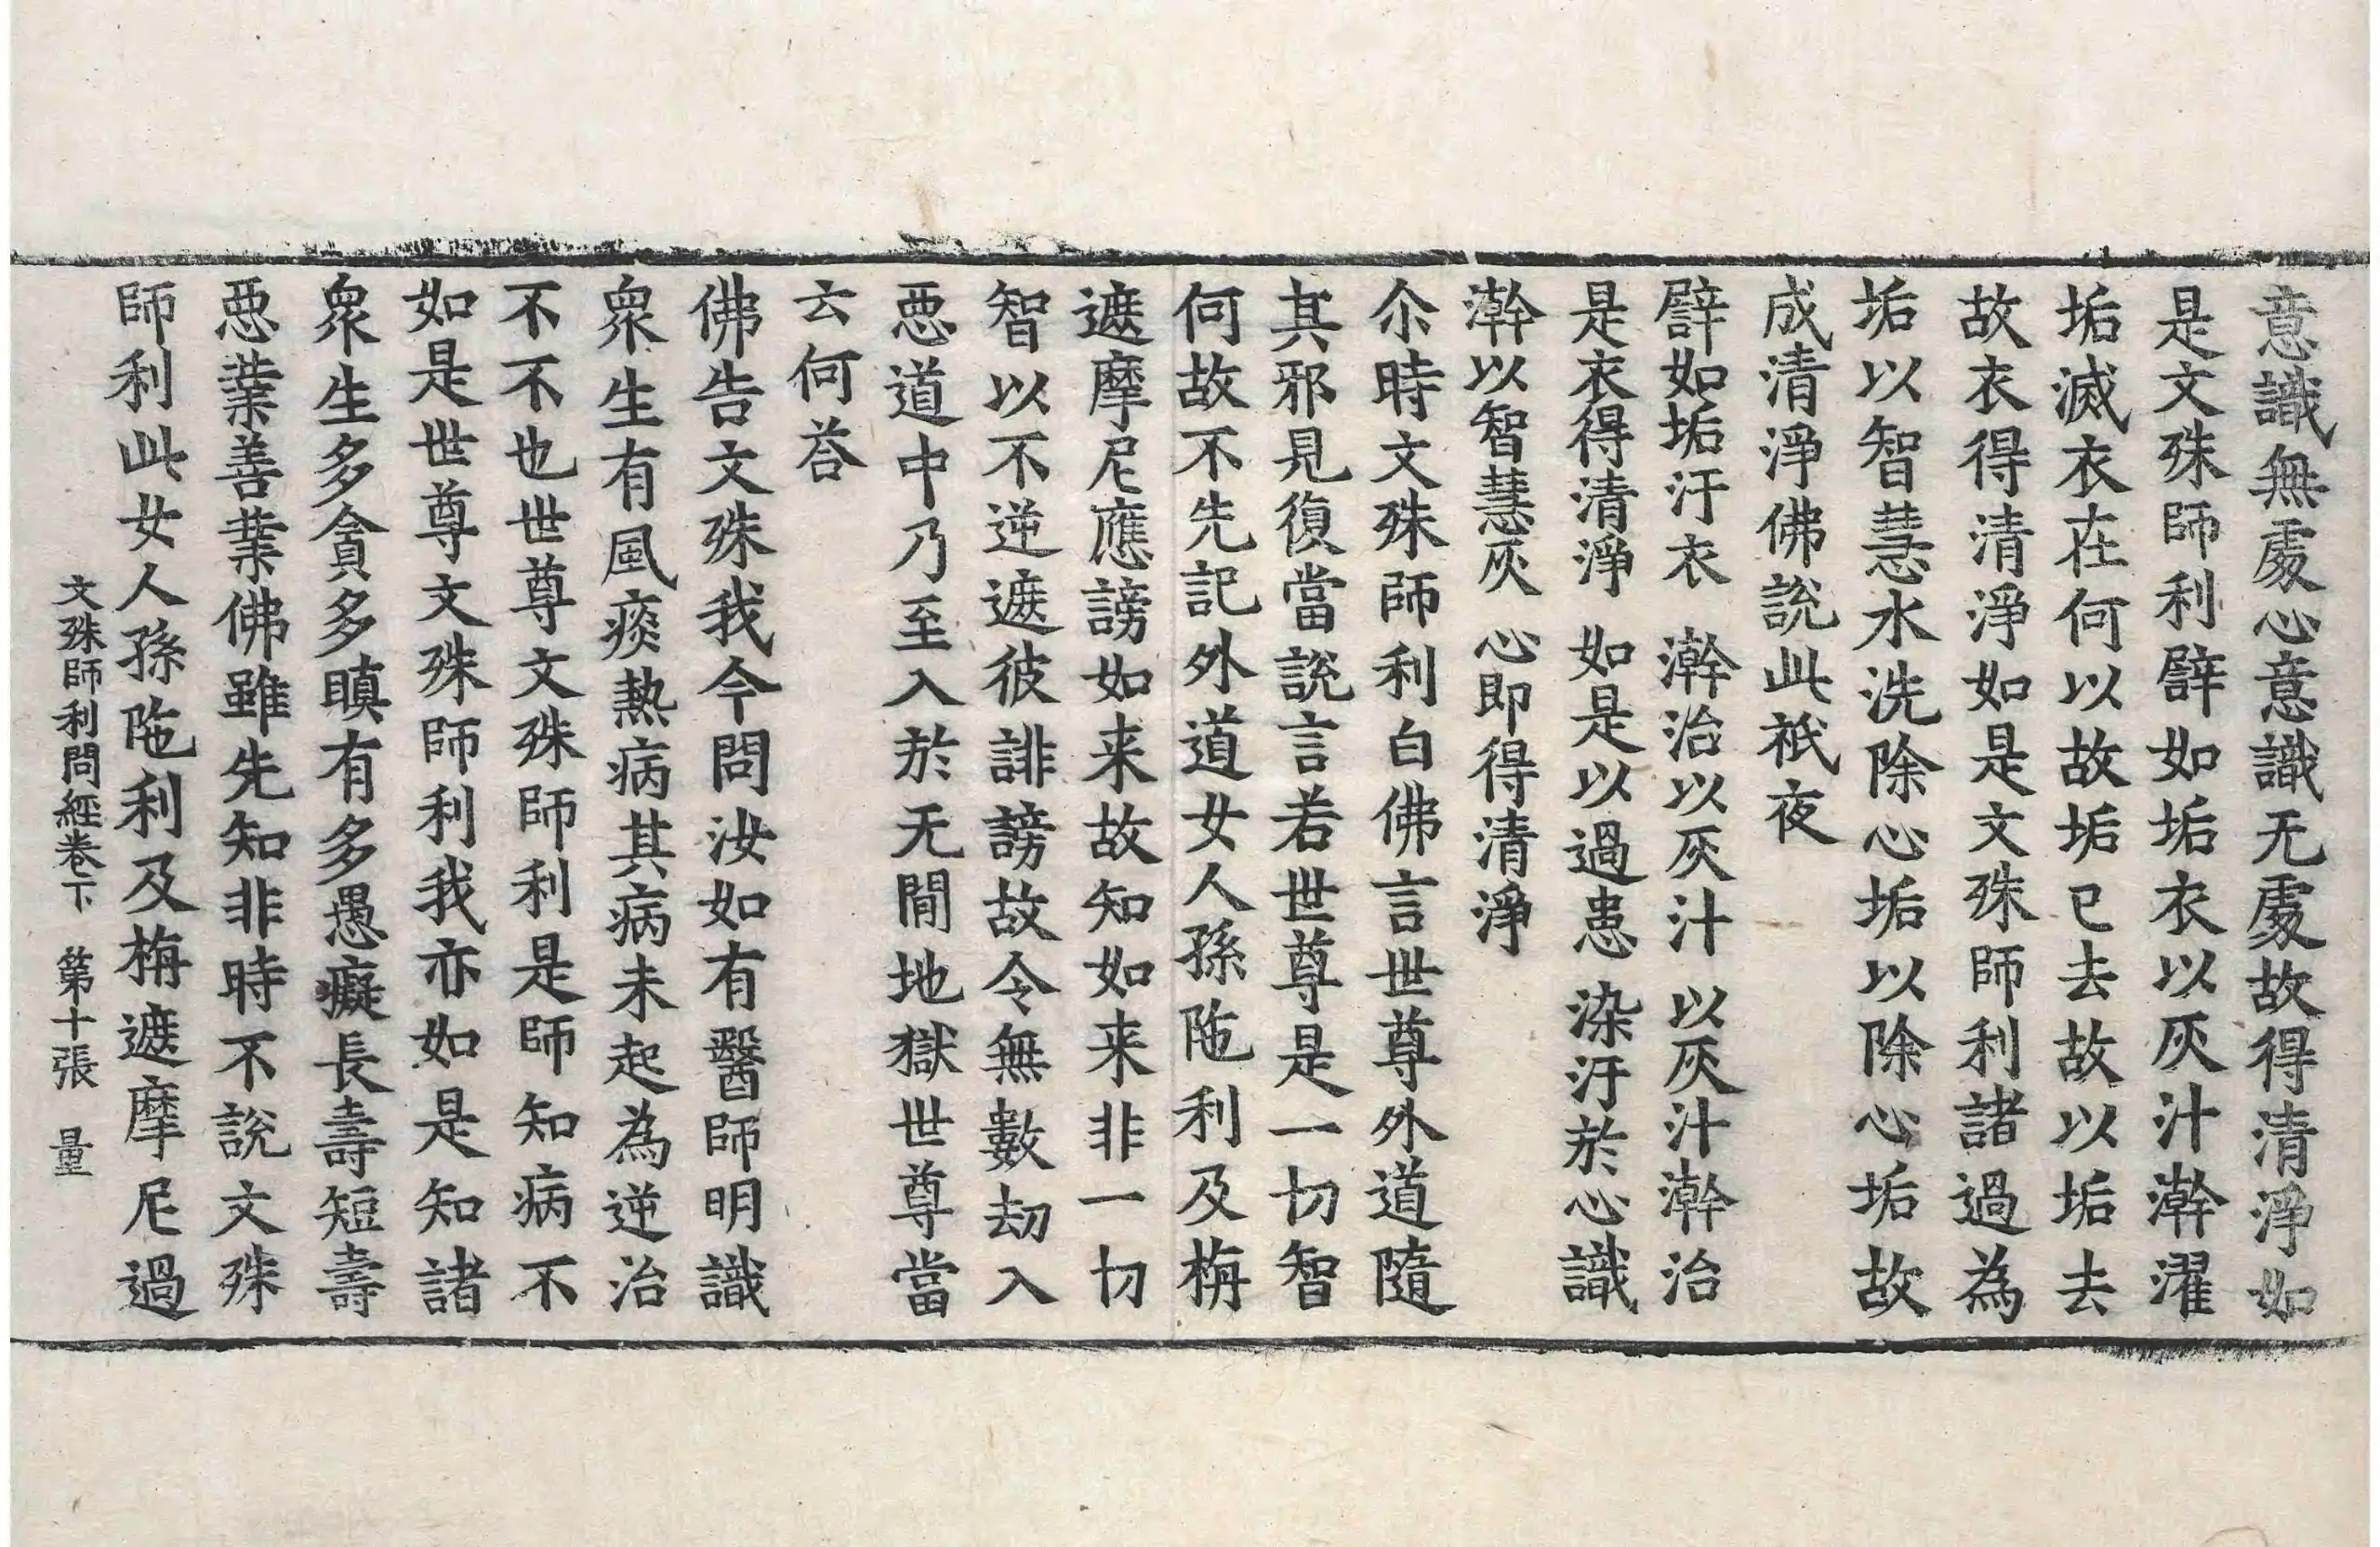 意識無處心意識无處故得清淨如
是文殊師利譬如垢衣以灰汁澣濯
垢滅衣在何以故垢已去故以垢去
故衣得清淨如是文殊師利諸過為
垢以智慧水洗除心垢以除心垢故
成清淨佛說此祇夜
譬如垢汙衣　澣治以灰汁　以灰汁澣治
是衣得清淨　如是以過患　染汙於心識
澣以智慧灰　心即得清淨
尒時文殊師利白佛言世尊外道隨
其邪見復當說言若世尊是一切智
何故不先記外道女人孫陁利及栴
遮摩尼應謗如来故知如来非一切
智以不逆遮彼誹謗故令無數劫入
惡道中乃至入於无間地獄世尊當
云何荅
佛告文殊我今問汝如有醫師明識
衆生有風痰熱病其病未起為逆治
不不也世尊文殊師利是師知病不
如是世尊文殊師利我亦如是知諸
衆生多貪多瞋有多愚癡長壽短壽
惡業善業佛雖先知非時不說文殊
師利此女人孫陁利及栴遮摩尼過
文殊師利問經卷下　第十張　量